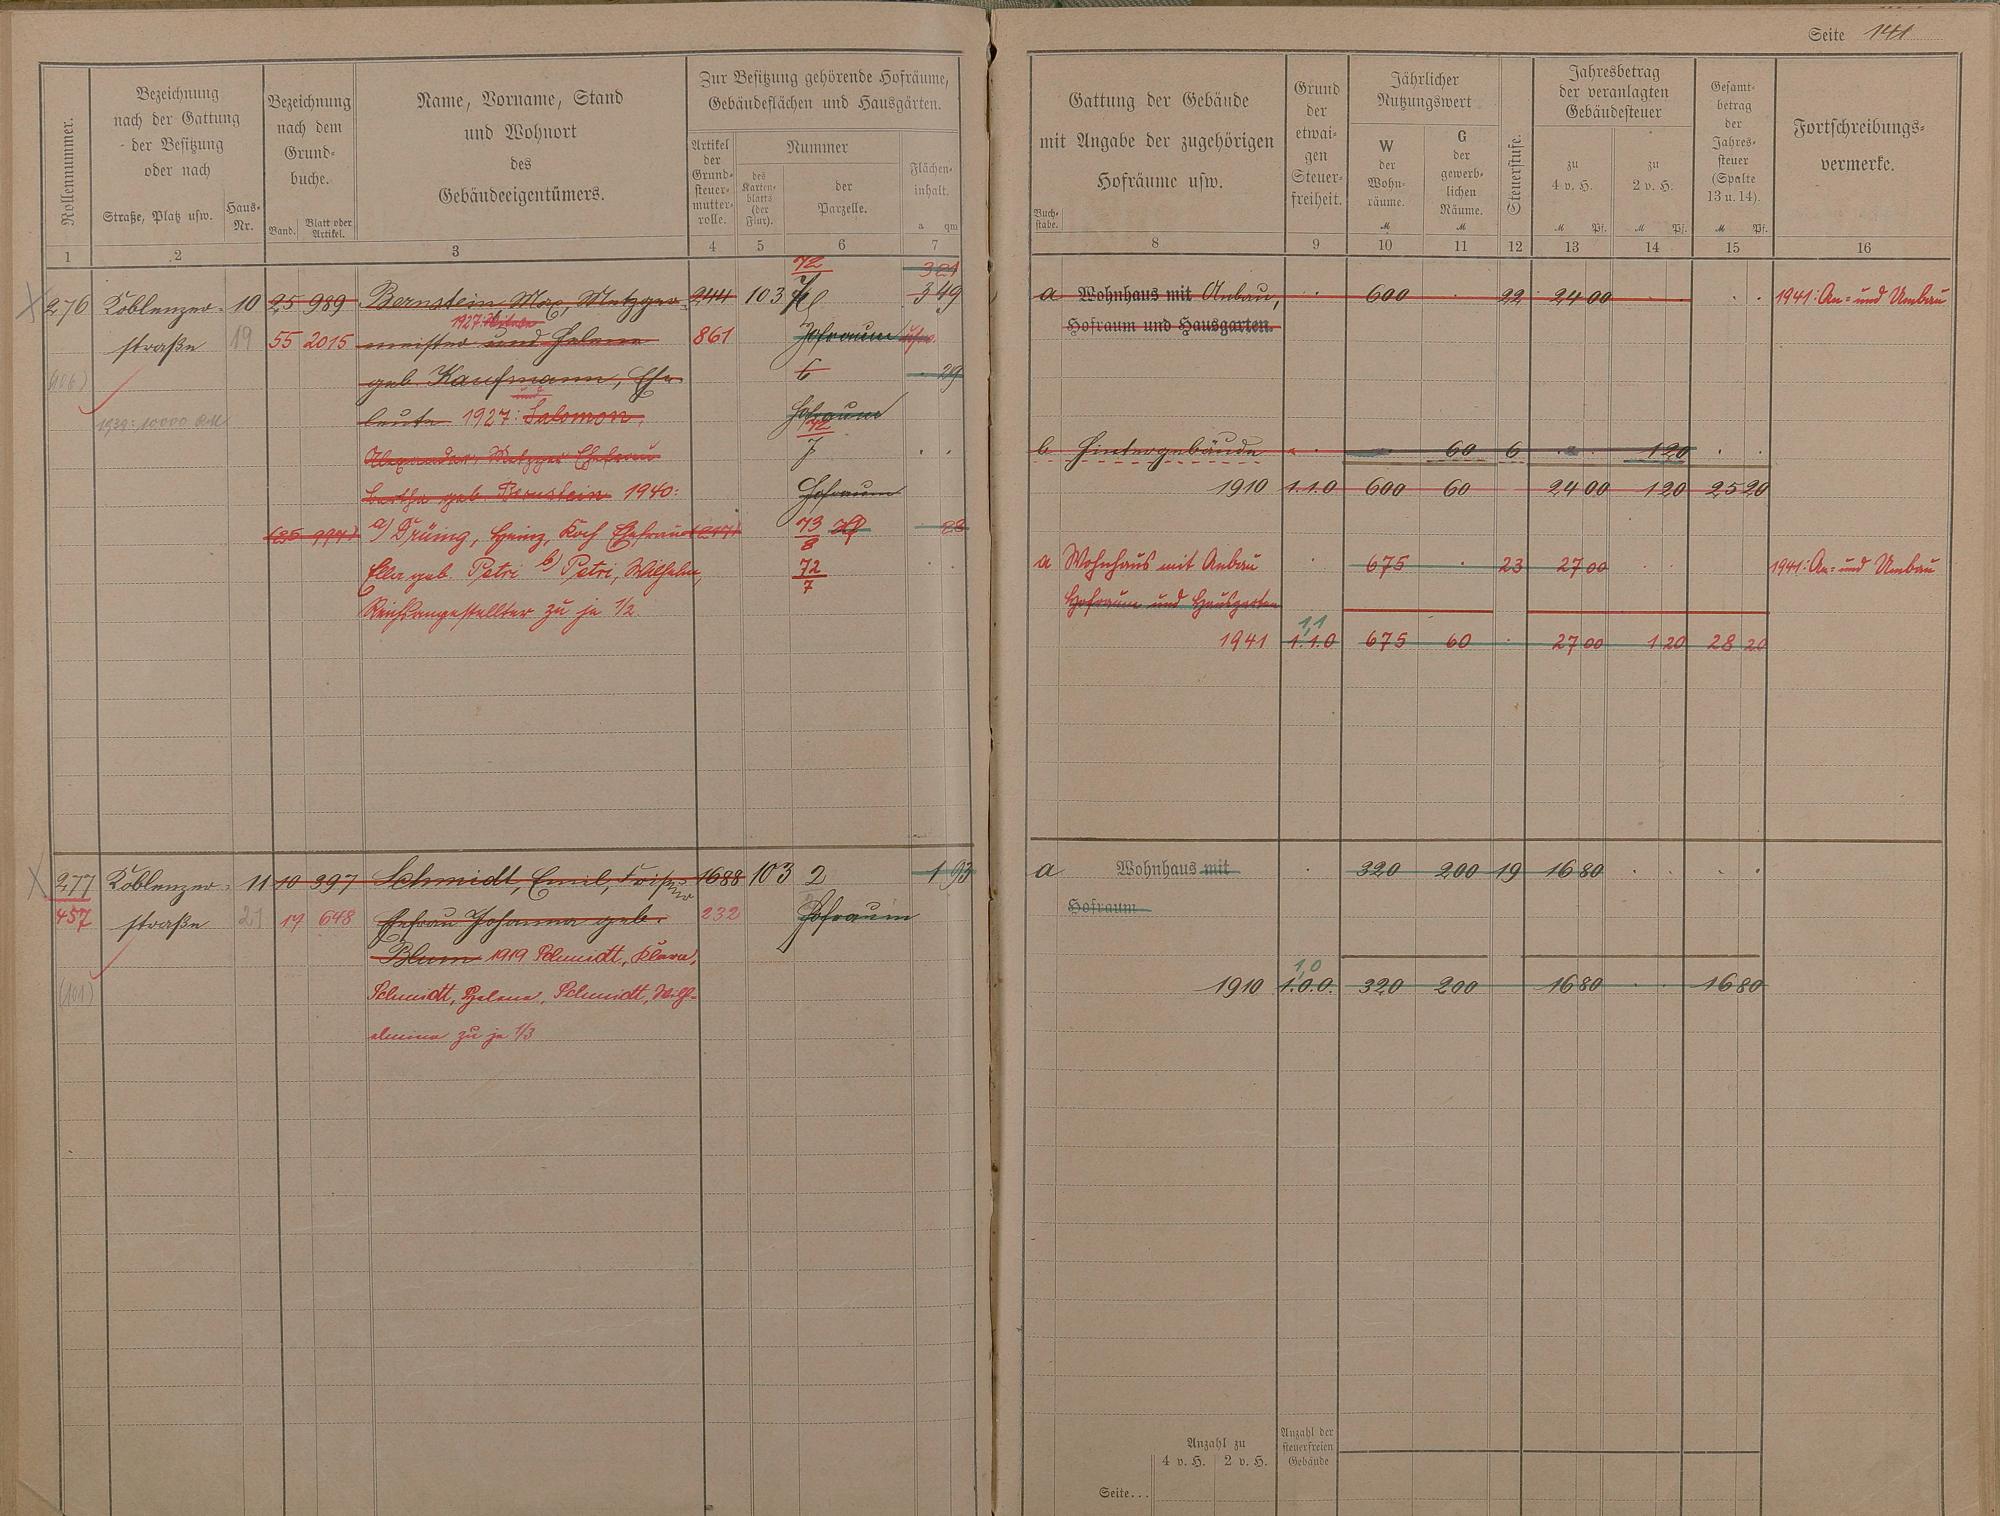 Seite 141
Rollennummer.
Bezeichnung
nach der Gattung
der Besitzung
oder nach
Straße, Platz usw.
Haus-
Nr.
Bezeichnung
nach dem
Grund-
buche.
Band.
Blatt oder
Artikel.
Name, Vorname, Stand
und Wohnort
des
Gebäudeeigentümers.
Zur Besitzung gehörende Hofräume,
Gebäudeflächen und Hausgärten.
Artikel
der
Grund-
steuer-
mutter-
rolle.
Nummer
des
Karten-
blatts
(der
Flur).
der
Parzelle.
Flächen-
inhalt.
a qm
1 2 3 4 5 6 7
276 Koblenzer- 10 25 989 Bernstein Max, Metzger- 244 103 349
72
321
1927: Witwe
straße 19 55 2015 meister und Helene 861 Hofraum usw.
(106) geb. Kaufmann, Ehe- 6 29
und
1939: 10000 RM leute 1927: Salomon, Hofraum
Alexander, Metzger Ehefrau 72
7
Bertha geb. Bernstein 1940: Hofraum
a) Drüing, Heinz, Koch Ehefrau 73 28
8
Ella geb. Petri b) Petri, Wilhelm, 72
7
Reichsangestellter zu je 1/2
277 Koblenzer- 11 10 397 Schmidt, Emil, Friseur 1688 103 2 1 93
457 straße 21 17 648 Ehefrau Johanna geb. 232 Hofraum
Blum 1919 Schmidt, Klara,
(101) Schmidt, Helene, Schmidt, Wilh-
elmine zu je 1/3
Gattung der Gebäude
mit Angabe der zugehörigen
Hofräume usw.
Buch-
stabe.
Grund
der
etwai-
gen
Steuer-
freiheit.
Jährlicher
Nutzungswert
W
der
Wohn-
räume.
M
G
der
gewerb-
lichen
Räume.
M
Steuerstufe.
Jahresbetrag
der veranlagten
Gebäudesteuer
zu
4 v. H.
M Pf.
zu
2 v. H.
M Pf.
Gesamt-
betrag
der
Jahres-
steuer
(Spalte
13 u. 14).
M Pf.
Fortschreibungs-
vermerke.
8 9 10 11 12 13 14 15 16
a Wohnhaus mit Anbau, 600 22 24 00 1941: An- und Umbau
Hofraum und Hausgarten.
b Hintergebäude 60 6 1 20
1910 1.1.0 600 60 24 00 1 20 25 20
a Wohnhaus mit Anbau 675 23 27 00 1941: An- und Umbau
Hofraum und Hausgarten
1,1
1941 1.1.0 675 60 27 00 1 20 28 20
a Wohnhaus mit 320 200 19 16 80
Hofraum
1,0
1910 1.0.0. 320 200 16 80 16 80
Anzahl zu
4 v. H. 2 v. H.
Anzahl der
steuerfreien
Gebäude
Seite...